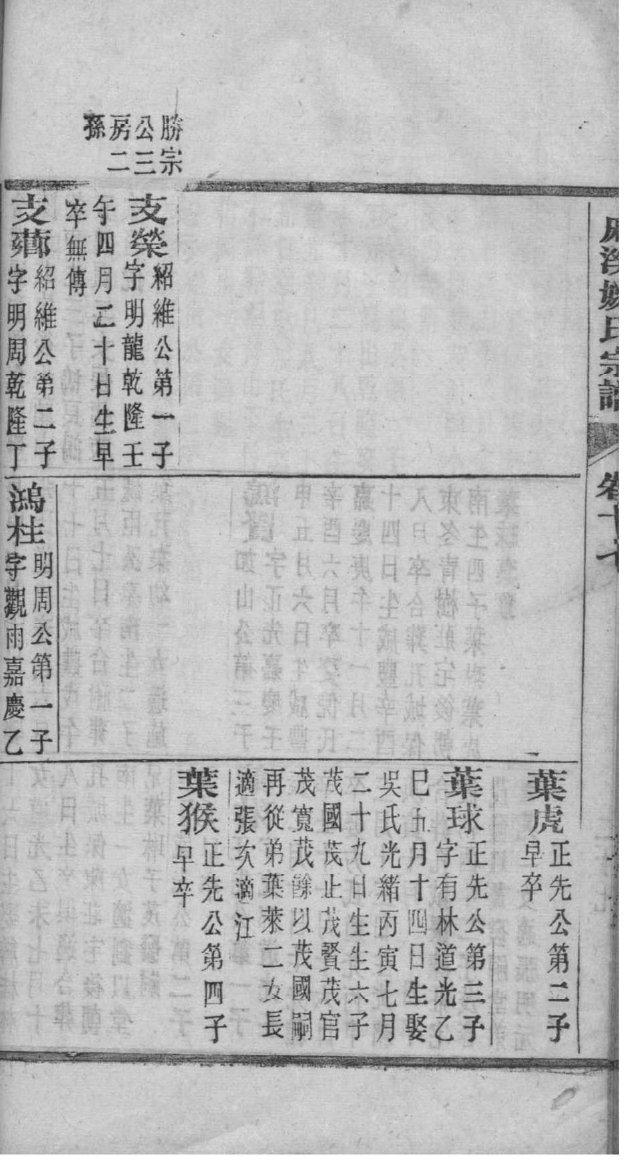 麻溪姚氏宗譜
卷十七
勝宗
公三
房二
孫
支榮
紹維公第一子
字明龍乾隆壬
午四月二十日生早
卒無傳
支
紹維公第二子
字明周乾隆丁
鴻桂
明周公第一子
字觀雨嘉慶乙
葉虎
正先公第二子
早卒
葉球
正先公第三子
字有林道光乙
巳五月十四日生娶
吳氏光緒丙寅七月
二十九日生生六子
茂國茂止茂賢茂官
茂寬茂餘以茂國嗣
再從弟葉萊二女長
適張次適江
葉猴
正先公第四子
早卒